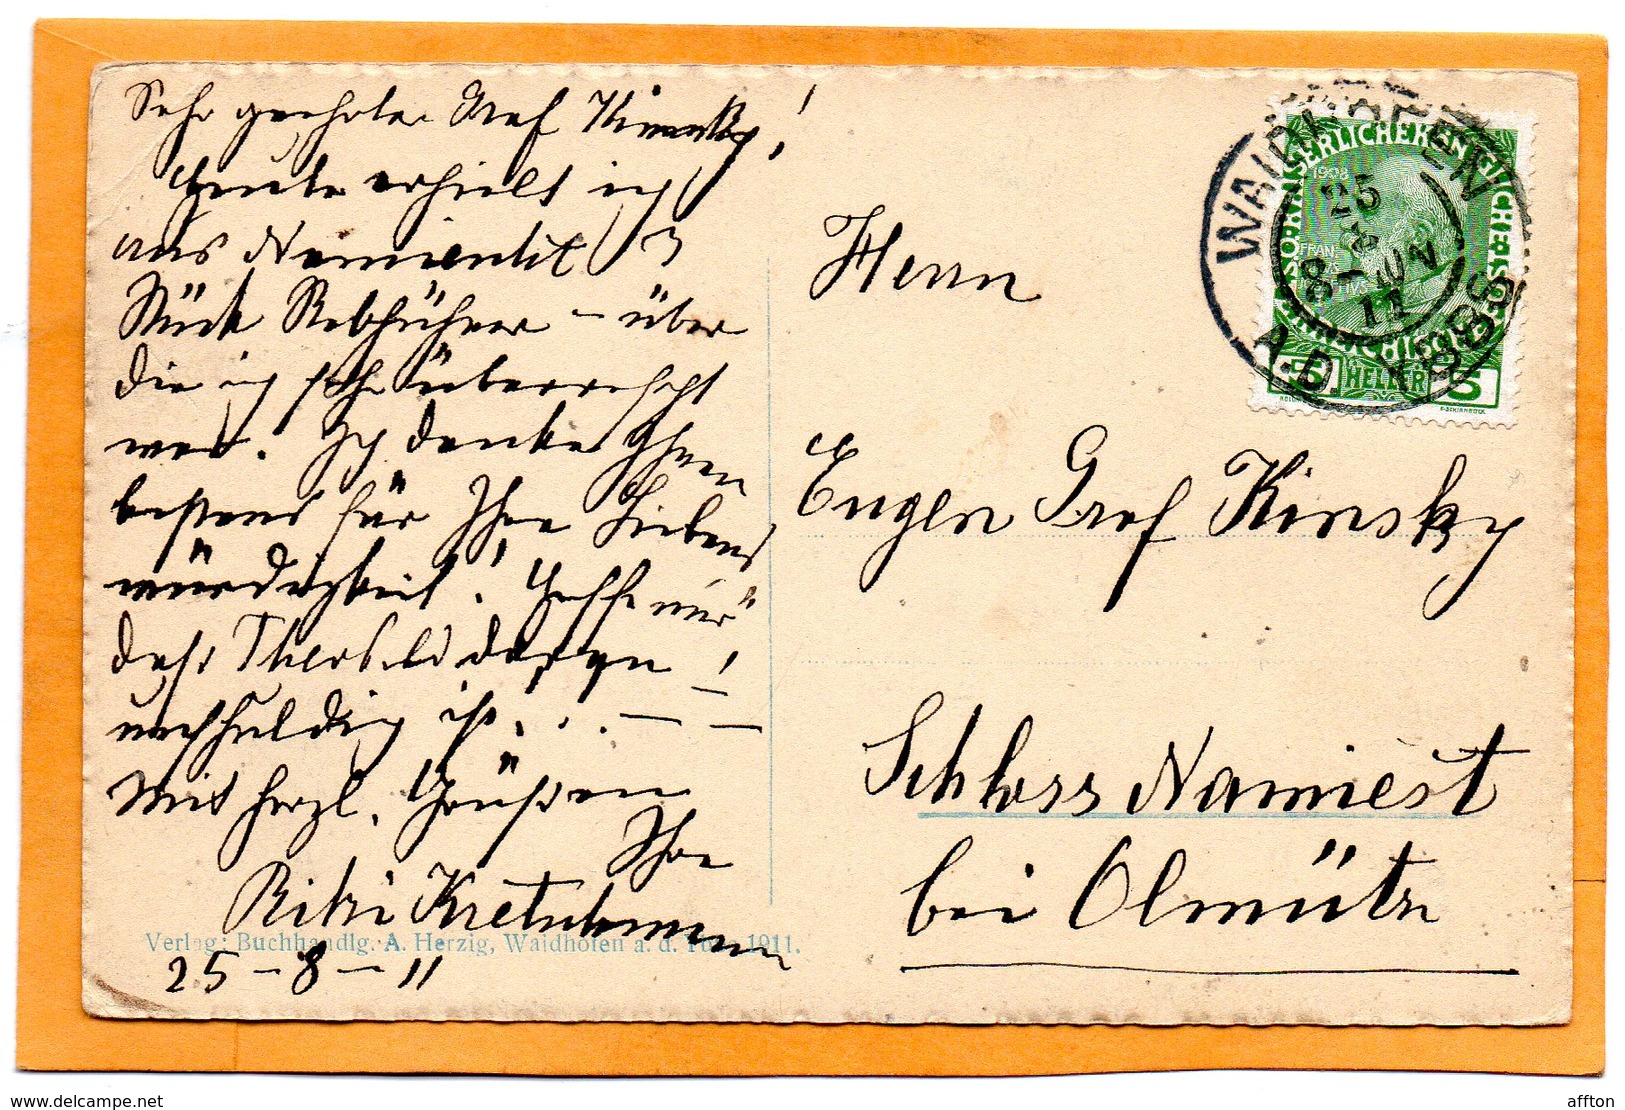 Sehr geehrter Graf Kinsky!
Heute erhielt ich
aus Namiescht 3
Stück Rebhühner – über
die ich sehr überrascht
war. Ich danke Ihnen
bestens für Ihre Liebens
würdigkeit! Hoffe nur
dass
unschuldig ist. . . — —
Mit herzl. Grüßen
Ihre
Ritzi
25 – 8 – 11
Verlag: Buchhandlg. A. Herzig, Waidhofen a. d. Ybbs 1911.
WAIDHOFEN
A.D. YBBS
25
8
11
KAISERLICHE KÖNIGLICHE
1908
5 HELLER 5
Herrn
Eugen Graf Kinsky
Schloss Namiest
bei Olmütz
delcampe.net
affton